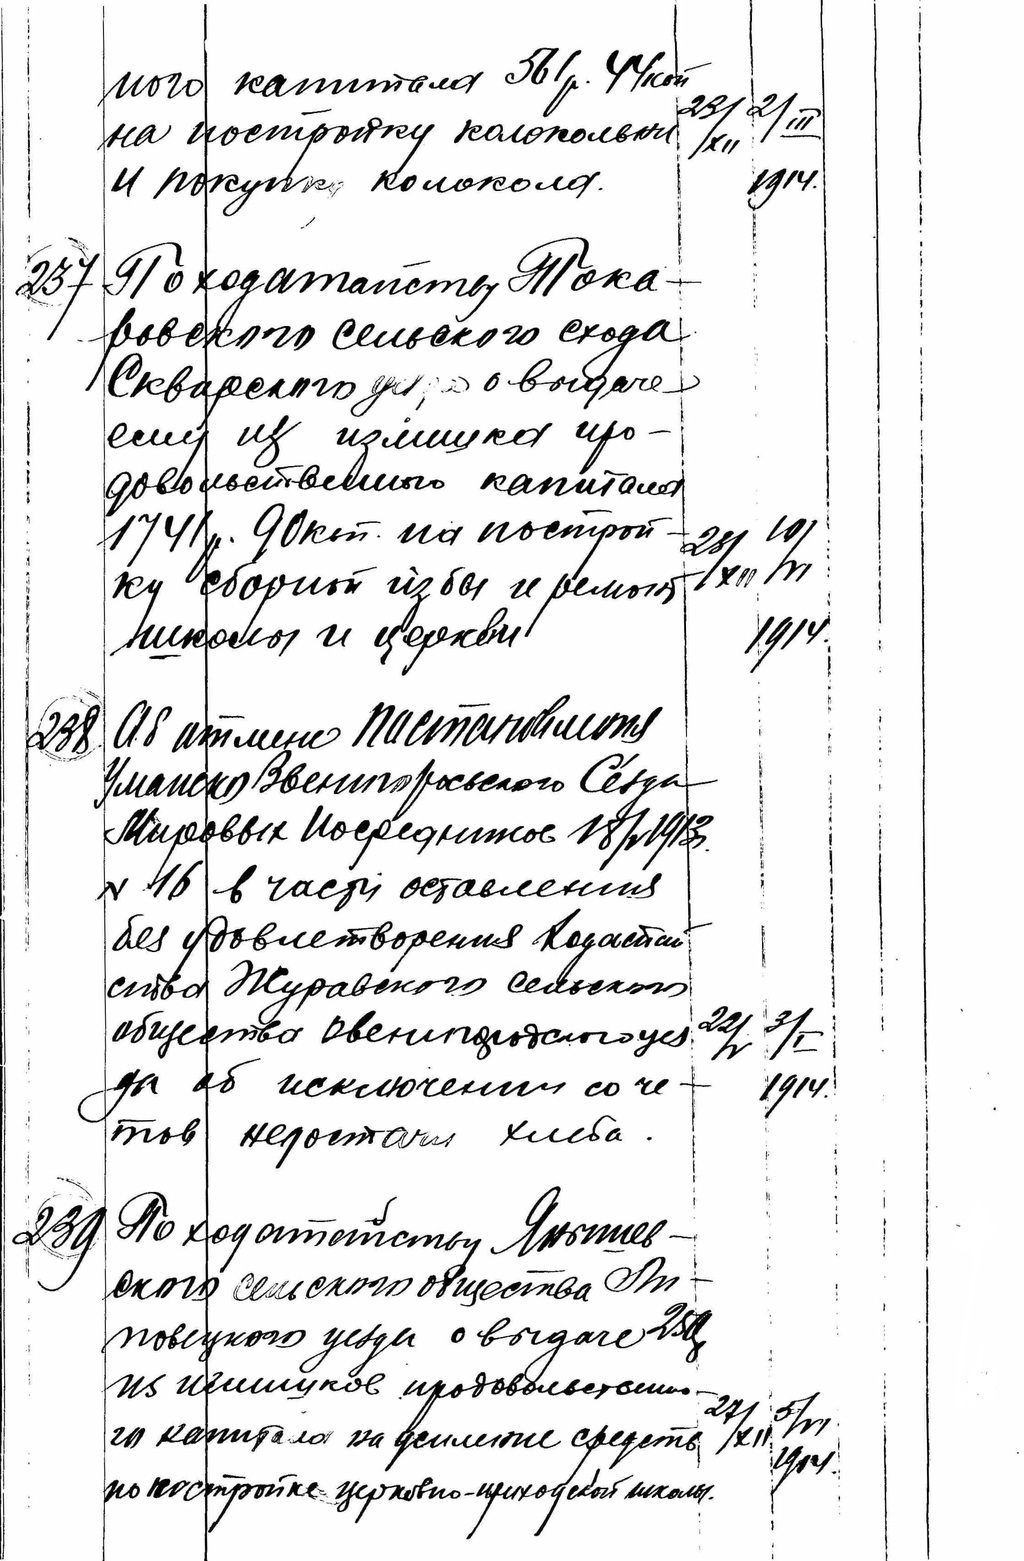 ного капитала 561р. 44коп
на постройку колокольни 23/XII 2/III
и покупку колокола. 1914.
237 По ходатайству Тока-
ровского сельского схода
Сквирского уезда о выдаче
ему из излишка про-
довольственного капитала
1741р. 90коп. на построй-
ку сборной избы и ремонт 23/XII 10/VI
школы и церкви 1914.
238 Об отмене постановления
Уманско Звенигородского Съезда
Мировых Посредников 1913г.
N 16 в части оставления
без удовлетворения ходатай
ства Журавского сельского
общества Звенигородского уез 22/V 3/I
да об исключении со че- 1914.
тов недостачи хлеба.
239 По ходатайству Янышев-
ского сельского общества Ли-
повецкого уезда о выдаче
из излишков продовольственно-
го капитала на усиление средств 27/XII 5/VI
по постройке церковно-приходской школы. 1914.